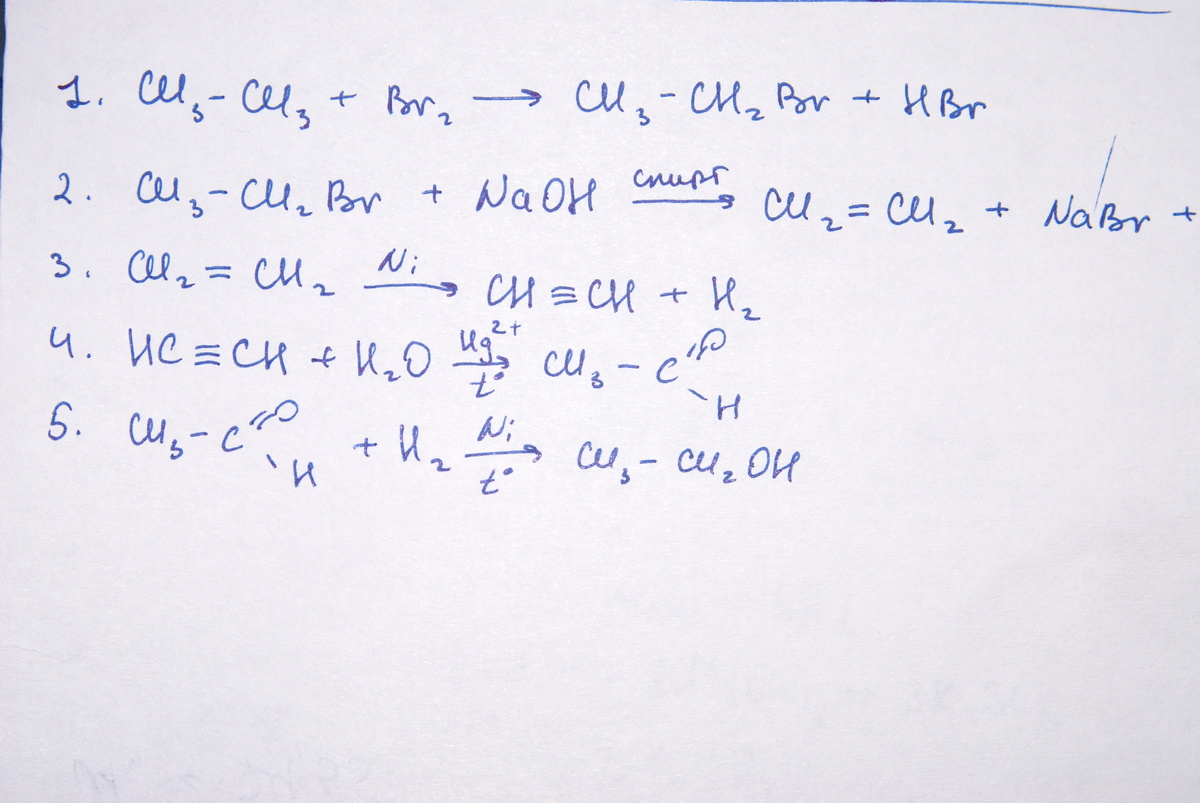 1. CH₃-CH₃ + Br₂ → CH₃-CH₂Br + HBr
2. CH₃-CH₂Br + NaOH спирт→ CH₂=CH₂ + NaBr +
3. CH₂=CH₂ Ni→ CH≡CH + H₂
4. HC≡CH + H₂O Hg²⁺→t° CH₃-C=O-H
5. CH₃-C=O-H + H₂ Ni→t° CH₃-CH₂OH